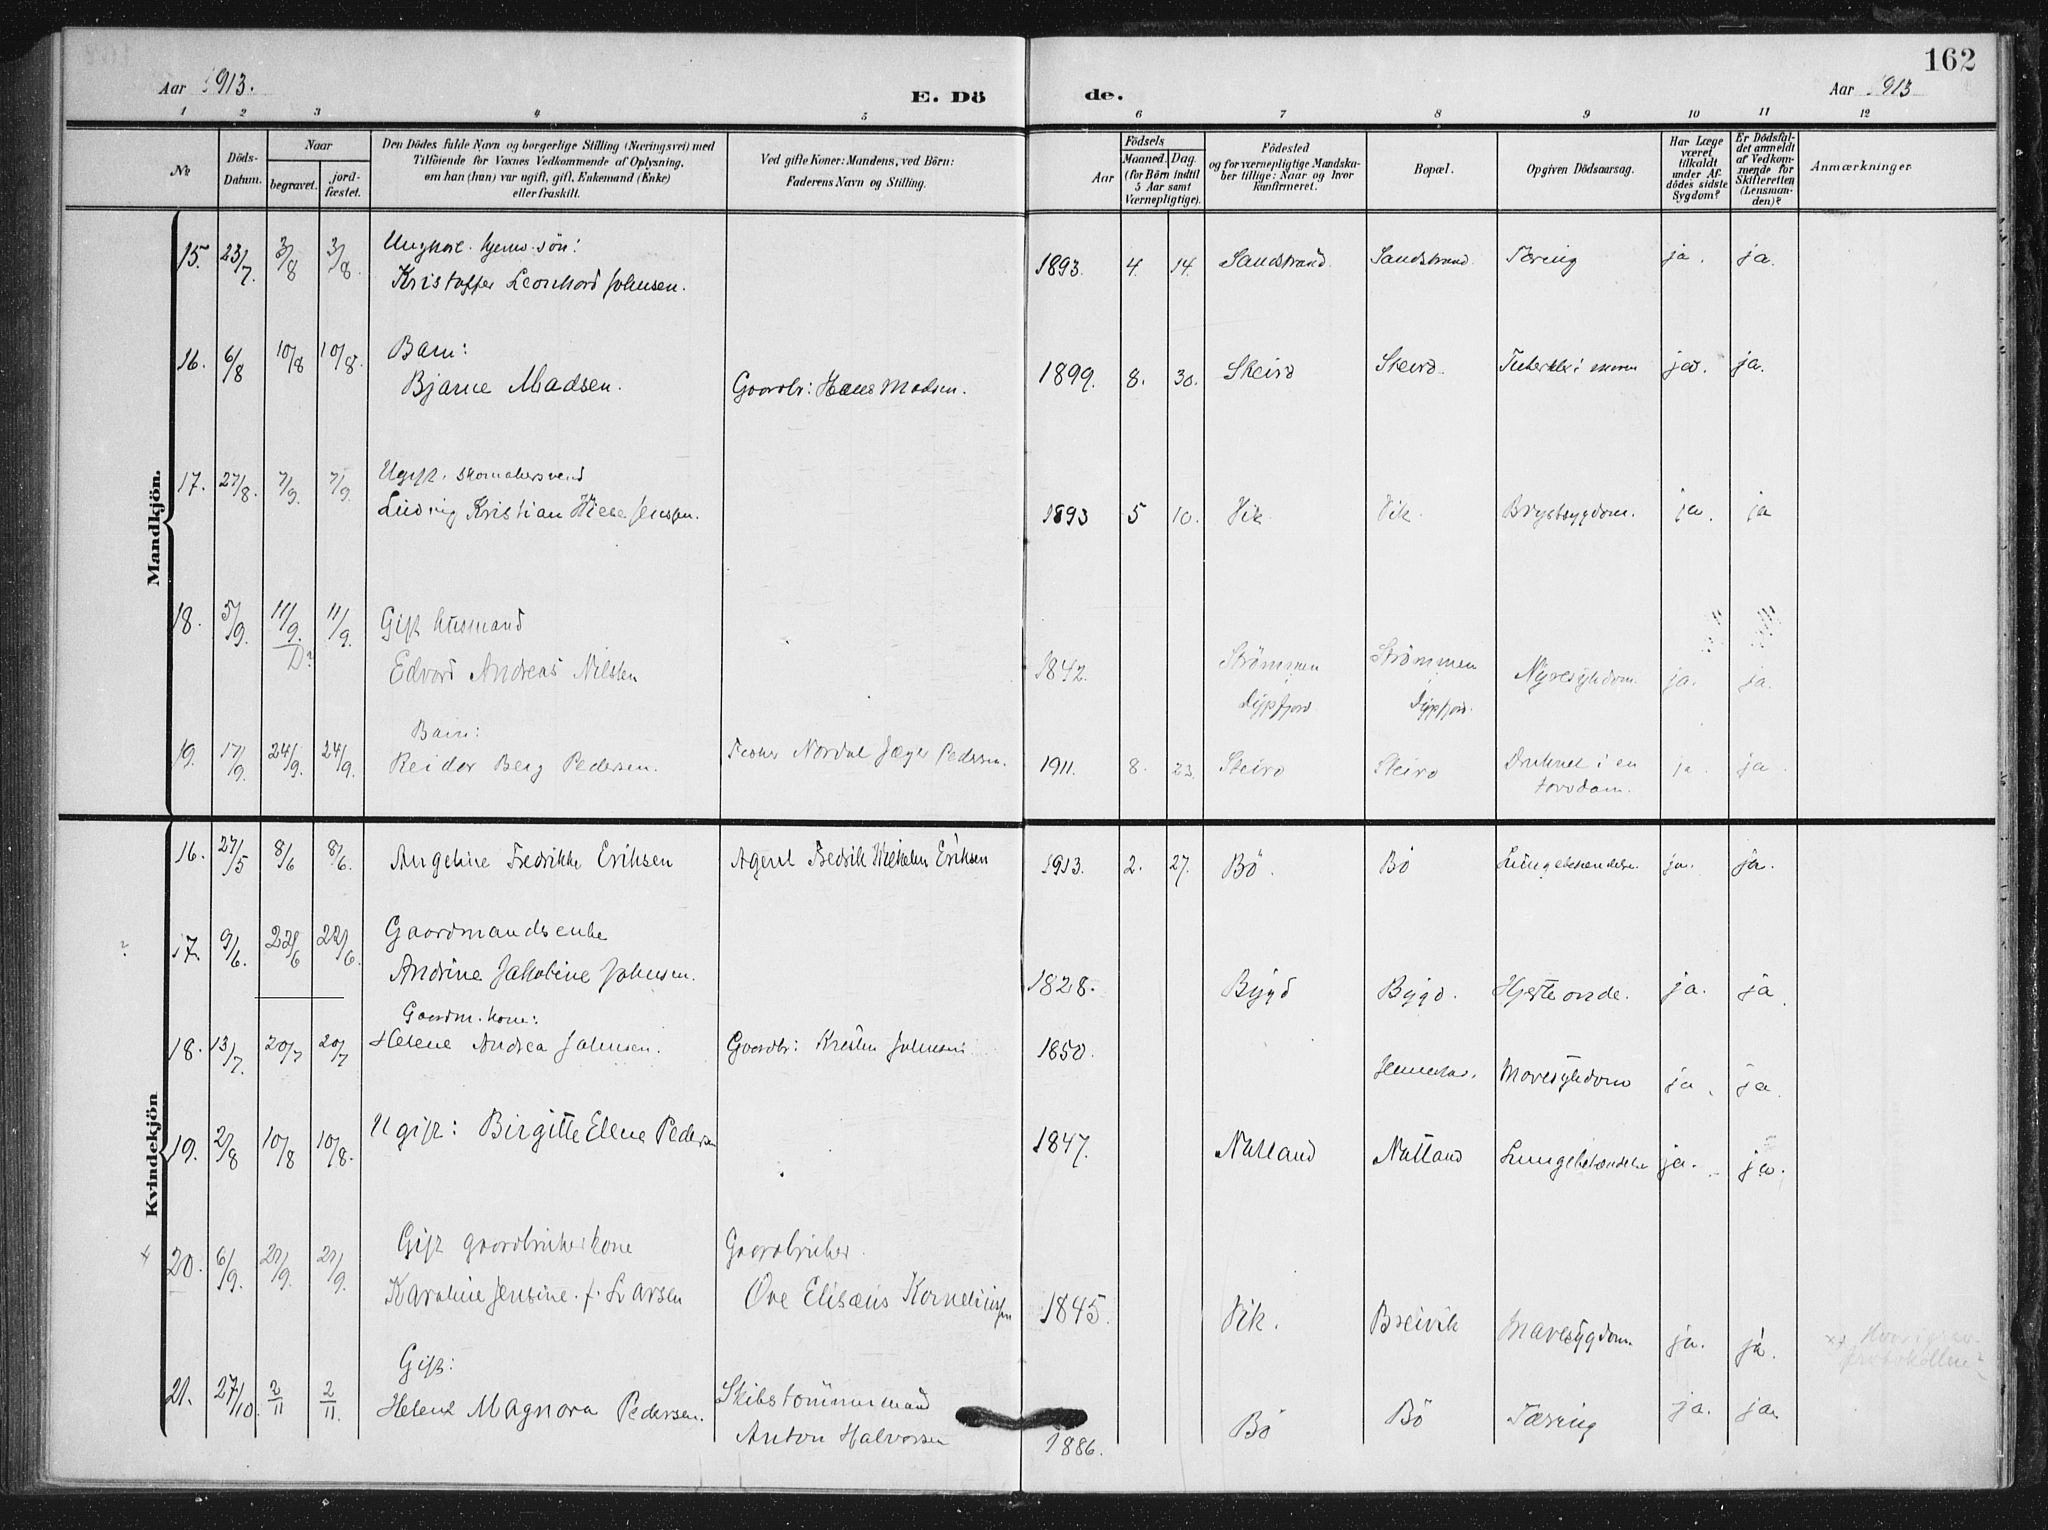 162
Aar 1913.
E. Dö
de.
Aar 1913
1 2 3 4 5 6 7 8 9 10 11 12
No
Döds-
Datum.
Naar
begravet.
jord-
fæstet.
Den Dödes fulde Navn og borgerlige Stilling (Næringsvei) med
Tilföiende for Voxnes Vedkommende af Oplysning,
om han (hun) var ugift, gift, Enkemand (Enke)
eller fraskilt.
Ved gifte Koner: Mandens, ved Börn:
Faderens Navn og Stilling.
Aar
Födsels
Maaned. Dag.
(for Börn indtil
5 Aar samt
Værnepligtige).
Födested
og for værnepligtige Mandska-
ber tillige: Naar og hvor
konfirmeret.
Bopæl.
Opgiven Dödsaarsag.
Har Læge
været
tilkaldt
under Af-
dödes sidste
Sygdom?
Er Dödsfal-
det anmeldt
af Vedkom-
mende for
Skifteretten
(Lensman-
den)?
Anmærkninger
Mandkjön.
15. 23/7 3/8 3/8 Ungkarl. hjemv. søn:
Kristoffer Leonhard Johnsen. 1893. 4. 14. Sandstrand. Sandstrand. Tæring ja. ja.
16. 6/8 10/8 10/8. Barn:
Bjarne Madsen. Gaardbr: Hans Madsen. 1899. 8. 30. Skeirø Skeirø. ja. ja.
17. 27/8. 7/9. 7/9. Ugift. skomakersvend
Ludvig Kristian Wiese Jenssen. 1893 5 10. Vik. Vik. Brystsygdom. ja. ja
18. 5/9. 11/9. 11/9. Gift husmand
D?
Edvard Andreas Nilsen 1842. Strømmen Strømmen Nyresykdom. ja. ja.
i
Dypfjord. Dypfjord.
Barn:
19. 17/9. 24/9. 24/9. Reidar Berg Pedersen. Fisker Nordal Jæger Pedersen. 1911. 8. 23. Skeirø Skeirø Druknet i en ja. ja.
torvdam.
Kvindekjön
16. 27/5 8/6 8/6. Angeline Fredrikke Eriksen Agent Fredrik Wilhelm Eriksen 1913. 2. 27. Bö. Bö Lungebetændelse. ja. ja.
? 17. 9/6. 22/6 22/6. Gaardmandsenke
Andrine Jakobine Johnsen. 1828. Bygd Bygd. Hjerteonde. ja. ja
Gaardm. kone:
18. 13/7. 20/7 20/7 Helene Andrea Johnsen. Gaardbr: Kristen Johnsen 1850. Mavesykdom ja. ja.
19. 2/8 10/8 10/8. Ugift: Birgitte Elene Pedersen 1847. Natland Natland Lungebetændelse ja. ja.
x 20. 6/9. 21/9. 21/9. Gift gaardbrukerkone Gaardbruker.
Karoline Jensine. f. Larsen Ove Elisæus Korneliussen 1845. Vik. Breivik Mavesygdom. ja. ja.
Gift:
21. 27/10. 2/11 2/11. Helene Magnora Pedersen. Skibstømmermand
Anton Halvorsen 1886. Bö Bö Tæring ja. ja.